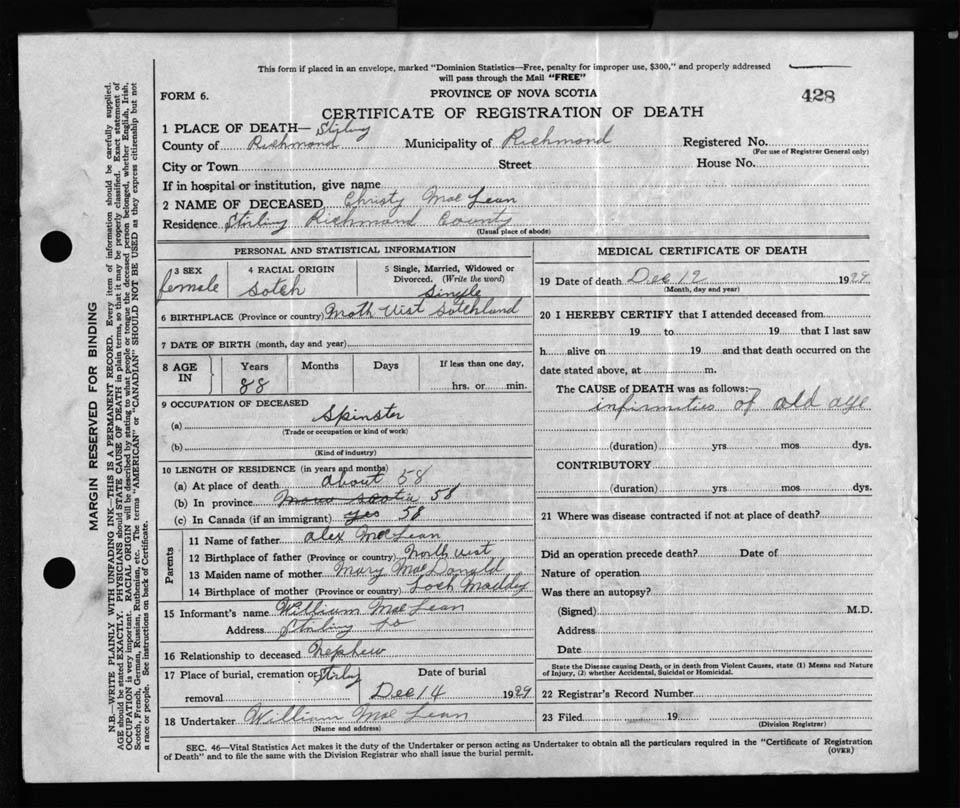 This form if placed in an envelope, marked "Dominion Statistics—Free, penalty for improper use, $300," and properly addressed
will pass through the Mail "FREE"
FORM 6.
PROVINCE OF NOVA SCOTIA
428
CERTIFICATE OF REGISTRATION OF DEATH
1 PLACE OF DEATH— Stirling
County of Richmond Municipality of Richmond Registered No.
(For use of Registrar General only)
City or Town Street House No.
If in hospital or institution, give name
2 NAME OF DECEASED Christy Mac Lean
Residence Stirling Richmond County
(Usual place of abode)
PERSONAL AND STATISTICAL INFORMATION
3 SEX female
4 RACIAL ORIGIN Sotch
5 Single, Married, Widowed or Divorced. (Write the word) Single
6 BIRTHPLACE (Province or country) North Uist Sotchland
7 DATE OF BIRTH (month, day and year)
8 AGE IN Years Months Days If less than one day,
88 hrs. or min.
9 OCCUPATION OF DECEASED
(a) Spinster
(Trade or occupation or kind of work)
(b)
(Kind of industry)
10 LENGTH OF RESIDENCE (in years and months)
(a) At place of death about 58
(b) In province Nova Scotia 58
(c) In Canada (if an immigrant) yes 58
Parents
11 Name of father Alex Mac Lean
12 Birthplace of father (Province or country) North Uist
13 Maiden name of mother Mary MacDonald
14 Birthplace of mother (Province or country) Loch Maddy
15 Informant's name William Mac Lean
Address Stirling
16 Relationship to deceased Nephew
17 Place of burial, cremation or removal Stirling Date of burial Dec 14 1929
18 Undertaker William Mac Lean
(Name and address)
MEDICAL CERTIFICATE OF DEATH
19 Date of death Dec 12 1929
(Month, day and year)
20 I HEREBY CERTIFY that I attended deceased from
19 to 19 that I last saw
h alive on 19 and that death occurred on the
date stated above, at m.
The CAUSE of DEATH was as follows:
infirmities of old age
(duration) yrs mos dys.
CONTRIBUTORY
(duration) yrs. mos. dys.
21 Where was disease contracted if not at place of death?
Did an operation precede death? Date of
Nature of operation
Was there an autopsy?
(Signed) M.D.
Address
Date
State the Disease causing Death, or in death from Violent Causes, state (1) Means and Nature
of Injury, (2) whether Accidental, Suicidal or Homicidal.
22 Registrar's Record Number
23 Filed 19
(Division Registrar)
SEC. 46—Vital Statistics Act makes it the duty of the Undertaker or person acting as Undertaker to obtain all the particulars required in the "Certificate of Registration
of Death" and to file the same with the Division Registrar who shall issue the burial permit. (OVER)
MARGIN RESERVED FOR BINDING
N.B.—WRITE PLAINLY WITH UNFADING INK—THIS IS A PERMANENT RECORD. Every item of information should be carefully supplied.
AGE should be stated EXACTLY. PHYSICIANS should STATE CAUSE OF DEATH in plain terms, so that it may be properly classified. Exact statement of
OCCUPATION is very important. RACIAL ORIGIN will be described by stating to what people or tongue the deceased person belonged, whether English, Irish,
Scotch, French, German, Russian, Ruthenian, etc. The terms "AMERICAN" or "CANADIAN" SHOULD NOT BE USED as they express citizenship but not
a race or people. See instructions on back of Certificate.